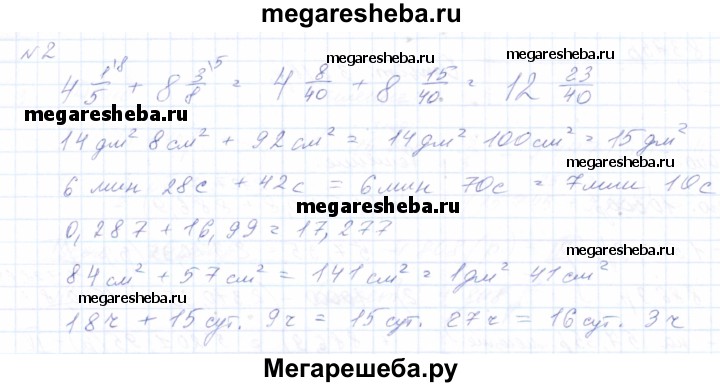 megaresheba.ru
№2
4 1/5 \8 + 8 3/8 \5 = 4 8/40 + 8 15/40 = 12 23/40
megaresheba.ru megaresheba.ru
megaresheba.ru
14 дм² 8 см² + 92 см² = 14 дм² 100 см² = 15 дм²
megaresheba.ru
6 мин 28 с + 42 с = 6 мин 70 с = 7 мин 10 с
megaresheba.ru
0,287 + 16,99 = 17,277
megaresheba.ru
84 см² + 57 см² = 141 см² = 1 дм² 41 см²
megaresheba.ru megaresheba.ru
18 ч + 15 сут. 9 ч = 15 сут. 27 ч = 16 сут. 3 ч
Мегарешеба.ру